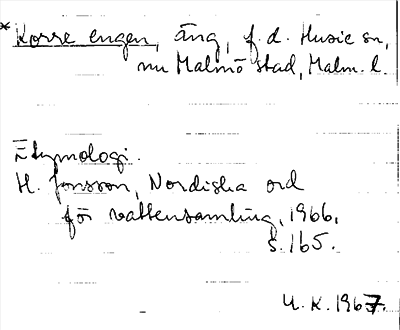 *Korre engen, äng, f.d. Husie sn,
nu Malmö stad, Malm. l.
Etymologi.
H. Jonsson, Nordiska ord
för vattensamling, 1966,
s. 165.
U.K. 1967.